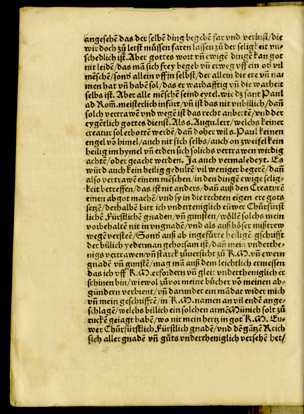 angesehẽ das der selbẽ ding begebẽ far vnd verlust/ die
wir doch zů letst müssen faren lassen zů der seligkeit vn-
schedlich ist. Aber gottes wort vñ ewigẽ dingẽ kan got
nit leidẽ/ das mã sich frey begeb vñ erweg vff ein oð vil
mẽschẽ/ sonð allein vff jn selbst/ der allein die ere vñ na-
men hat vñ habẽ sol/ das er warhafftig vñ die warheit
selbs ist. Aber alle mẽschẽ seind eytel/ wie ðs sant Paul
ad Rom. meisterlich infürt/ vñ ist das nit vnbillich/ dañ
solch vertrawẽ vnd wegẽ ist das recht anbetẽ/ vnd der
eygẽtlich gottes dienst. Als s. Augu. lert/ welchs keiner
creatur sol erbottẽ werdẽ/ dañ doher wil s. Paul keinen
engel võ himel/ auch nit sich selbs/ auch on zweifel kein
heilig im hymel vñ erden sich solchs vertrawẽs wirdig
achtẽ/ oder geacht werden. Ja auch vermaledeyt. Es
würd auch kein heilig gedultẽ vil weniger begerẽ/ dañ
also vertrawẽ einem mẽschen/ in den dingẽ ewige selig-
keit betreffen/ das ist nit anders/ dañ auß den Creaturẽ
einen abgot machẽ/ vnd sy in die rechten eigen ere gots
setzen/ derhalbẽ bitt ich vnderteniglich eüwer Chürfürst
lichẽ Fürstlichẽ gnaden/ vñ gunsten/ wöllẽ solchs mein
vorbehaltẽ nit in vngnadẽ/ vnd als auß böser meinung
wegẽ verstẽ/ Sonð auß ab ingefürtẽ heiligẽ gschrifft
der bülich yederman gehorsam ist/ dañ mein vnderthe-
nigs vertrawen/ vñ starck zůuersicht zů K. M. vñ ewern
gnadẽ vñ gunstẽ/ mag mã auß dem leichtlich ermessen
das ich vff K. M. erfordern vñ gleit vnderthenigklich er
schinen bin/ wiewol zůuor meine bücher võ meinen ab-
gündern verbrant/ vñ darunder ein mãdat wider mich
vñ mein geschrifft/ in K. M. namen an vil enden ange-
schlagẽ/ welchs billich ein solchen armẽ Münich solt zů
rucken geiagt haben/ wo nit mein hertz in got K. M. Eü-
wer Chürfürstlich Fürstlich gnadẽ/ vnd dẽ gãtzẽ Reich
sich aller gnadẽ vñ gůts vnderthenigklich versehẽ het/